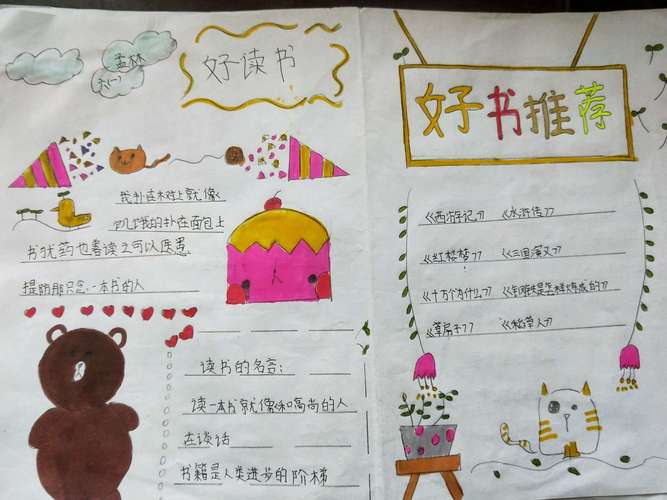 孟林
六(一)
好读书
我扑在书上就像
饥饿的扑在面包上
书犹药也善读之可以医愚
提防那只念一本书的人
读书的名言:
读一本书就像和高尚的人
在谈话
书籍是人类进步的阶梯
好书推荐
《西游记》 《水浒传》
《红楼梦》 《三国演义》
《十万个为什么》 《钢铁是怎样炼成的》
《草房子》 《稻草人》